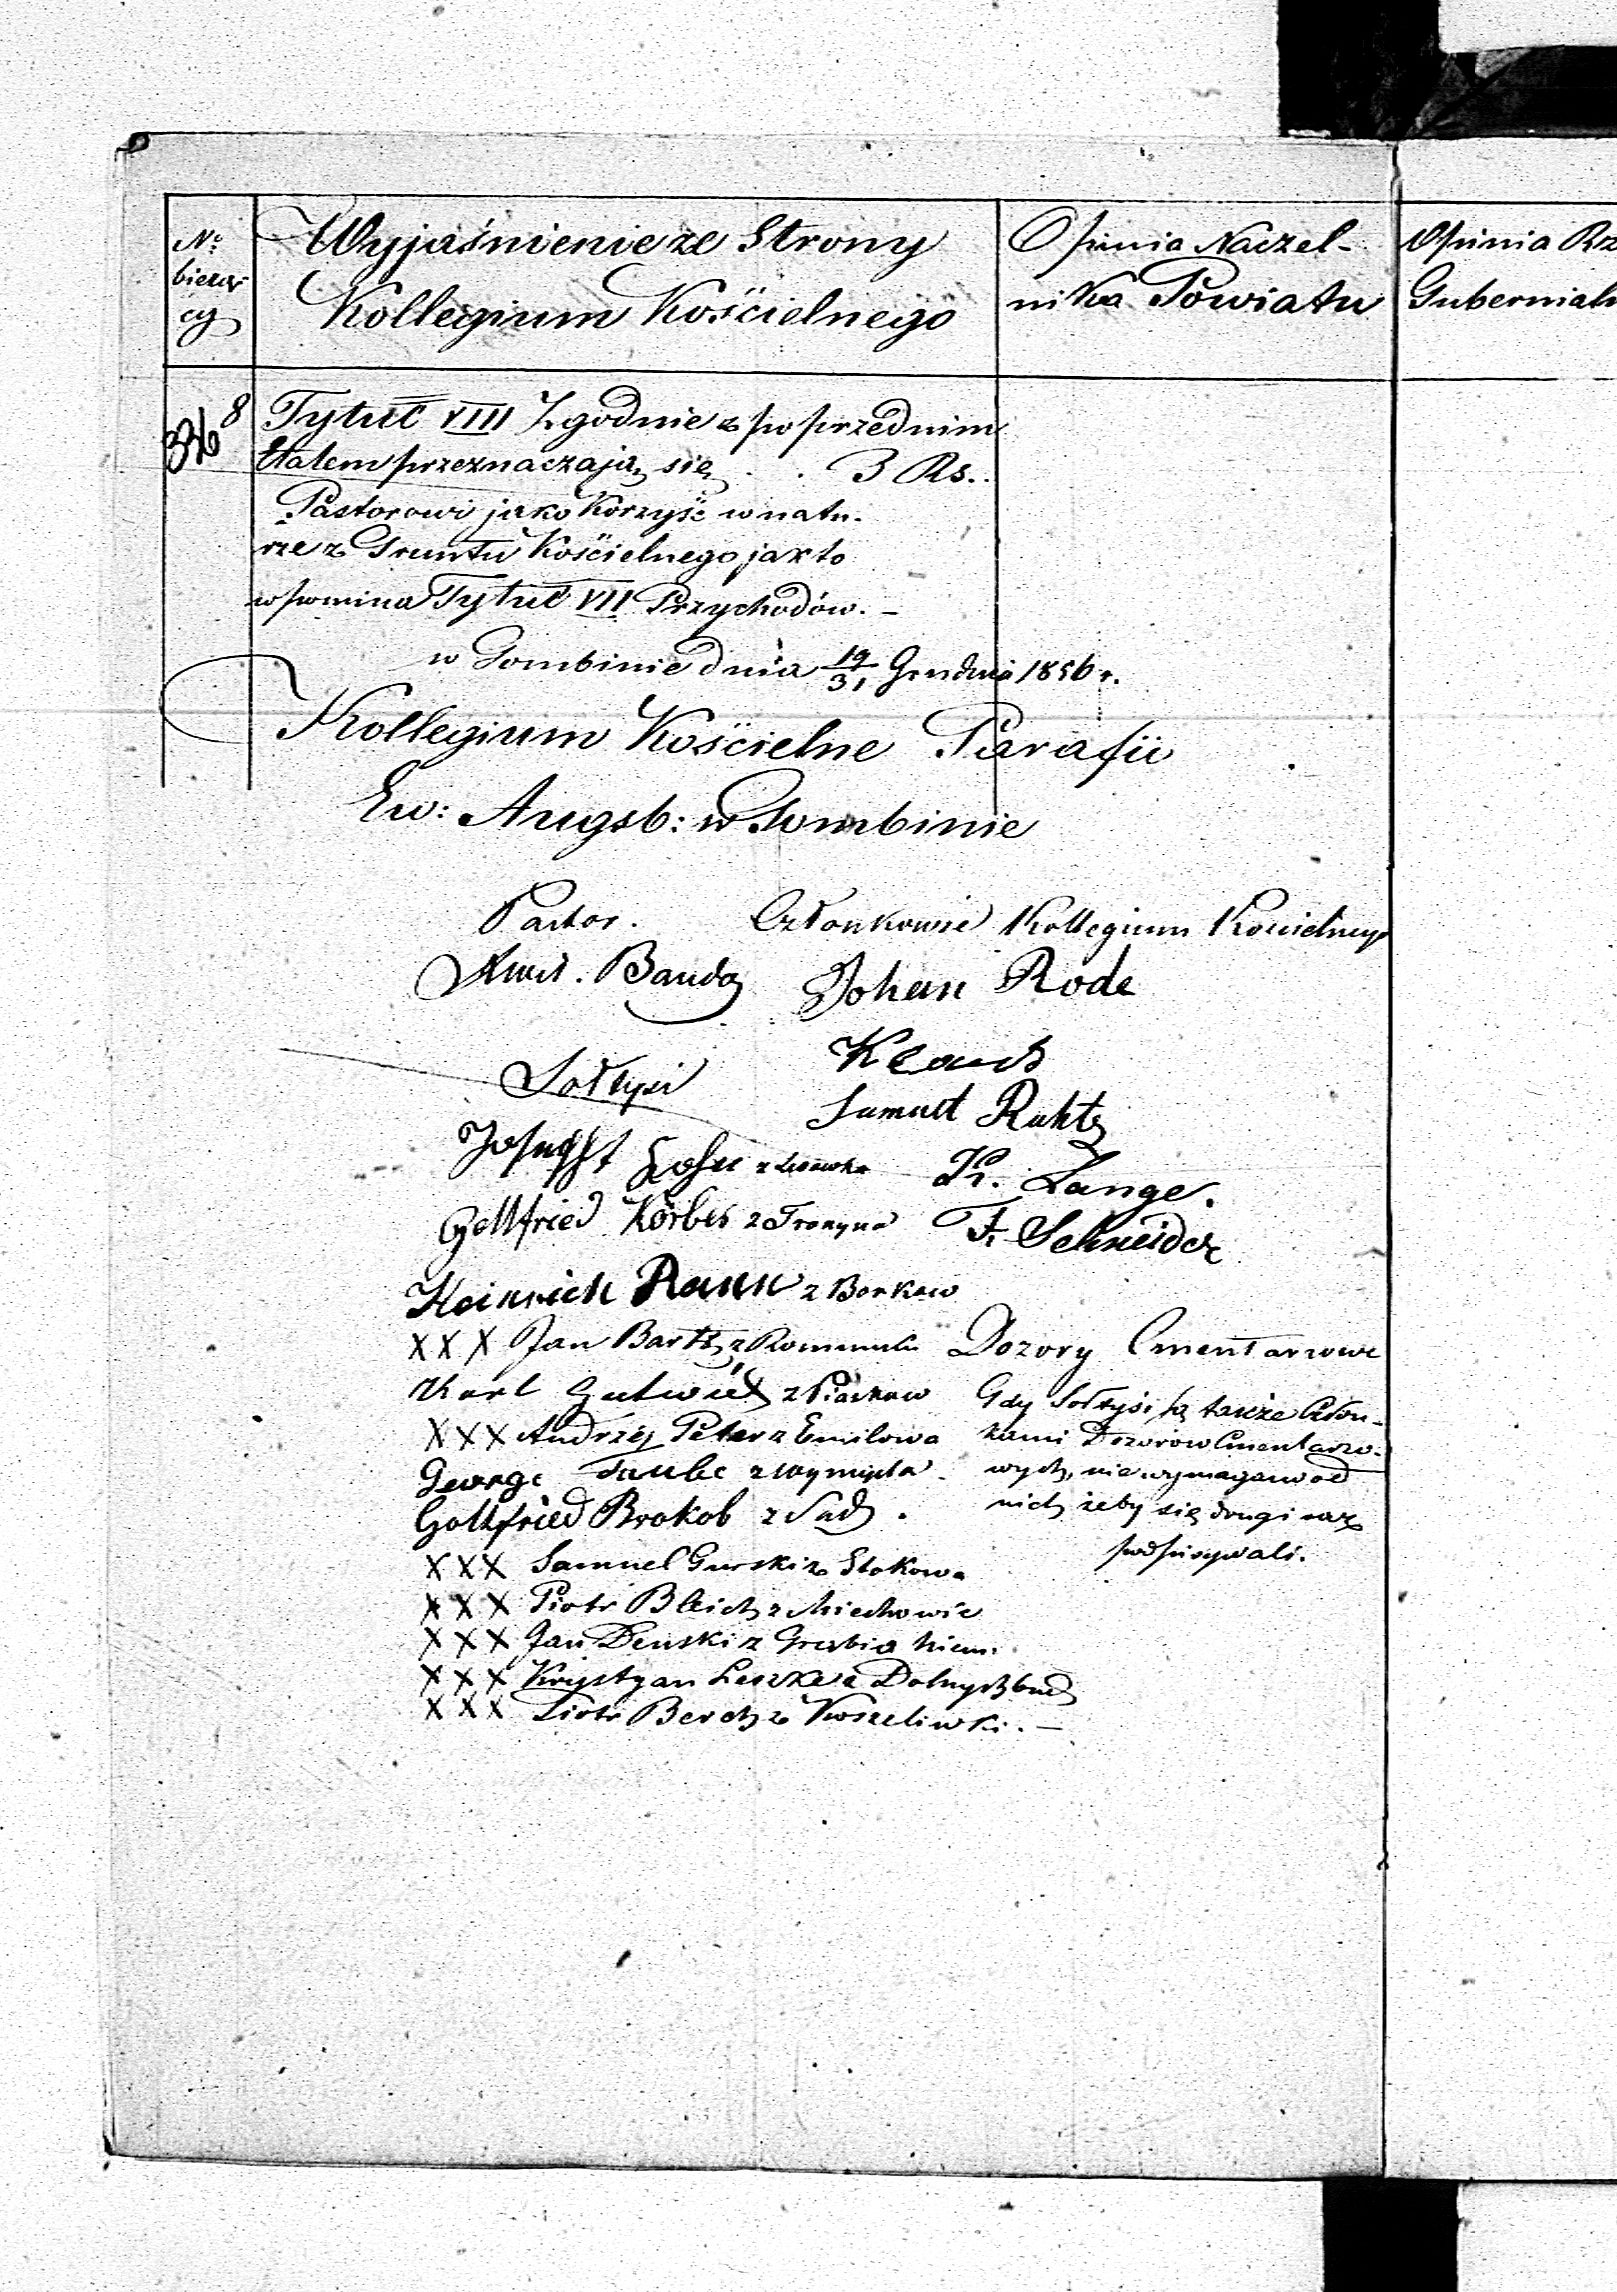 Nr bieżą- cy
Wyjaśnienie ze Strony
Kollegium Kościelnego
Opinia Naczel-
nika Powiatu
Opinia Rz
Gubernialn
8
Tytuł VIII Zgodnie z poprzednim
Etatem przeznaczają się . . 3 Rs.
Pastorowi jako Korzyść w natu-
rze z Gruntu Kościelnego jak to
wspomina Tytuł VII Przychodów. –
w Gombinie dnia 19/31 Grudnia 1856 r.
Kollegium Kościelne Parafii
Ew: Augsb: w Gombinie
Pastor.
Banda
Członkowie Kollegium Kościelnego
Johan Rode
Samuel
K. Lange.
F. Schneider
Sołtysi
Gottfried Körber z
Heinrich z Borkow
XXX Jan Bartz z Rommunk
Karl z Piaskow
XXX Andrzej Peter z Emilowa
George Taube z Wymyśla
Gottfried Brokob z Sad.
XXX Samuel Gurski z Stokowa
XXX Piotr Bleich z Miechowic
XXX Jan Denski z Grabia Niem.
XXX Krystyan z Dolnych
XXX Piotr Berch z Koszeliwki. –
Dozory Cmentarzowe
Gdy Sołtysi są także Człon-
kami Dozorow Cmentarzo-
wych, nie wymagano od
nich żeby się drugi raz
podpisywali.